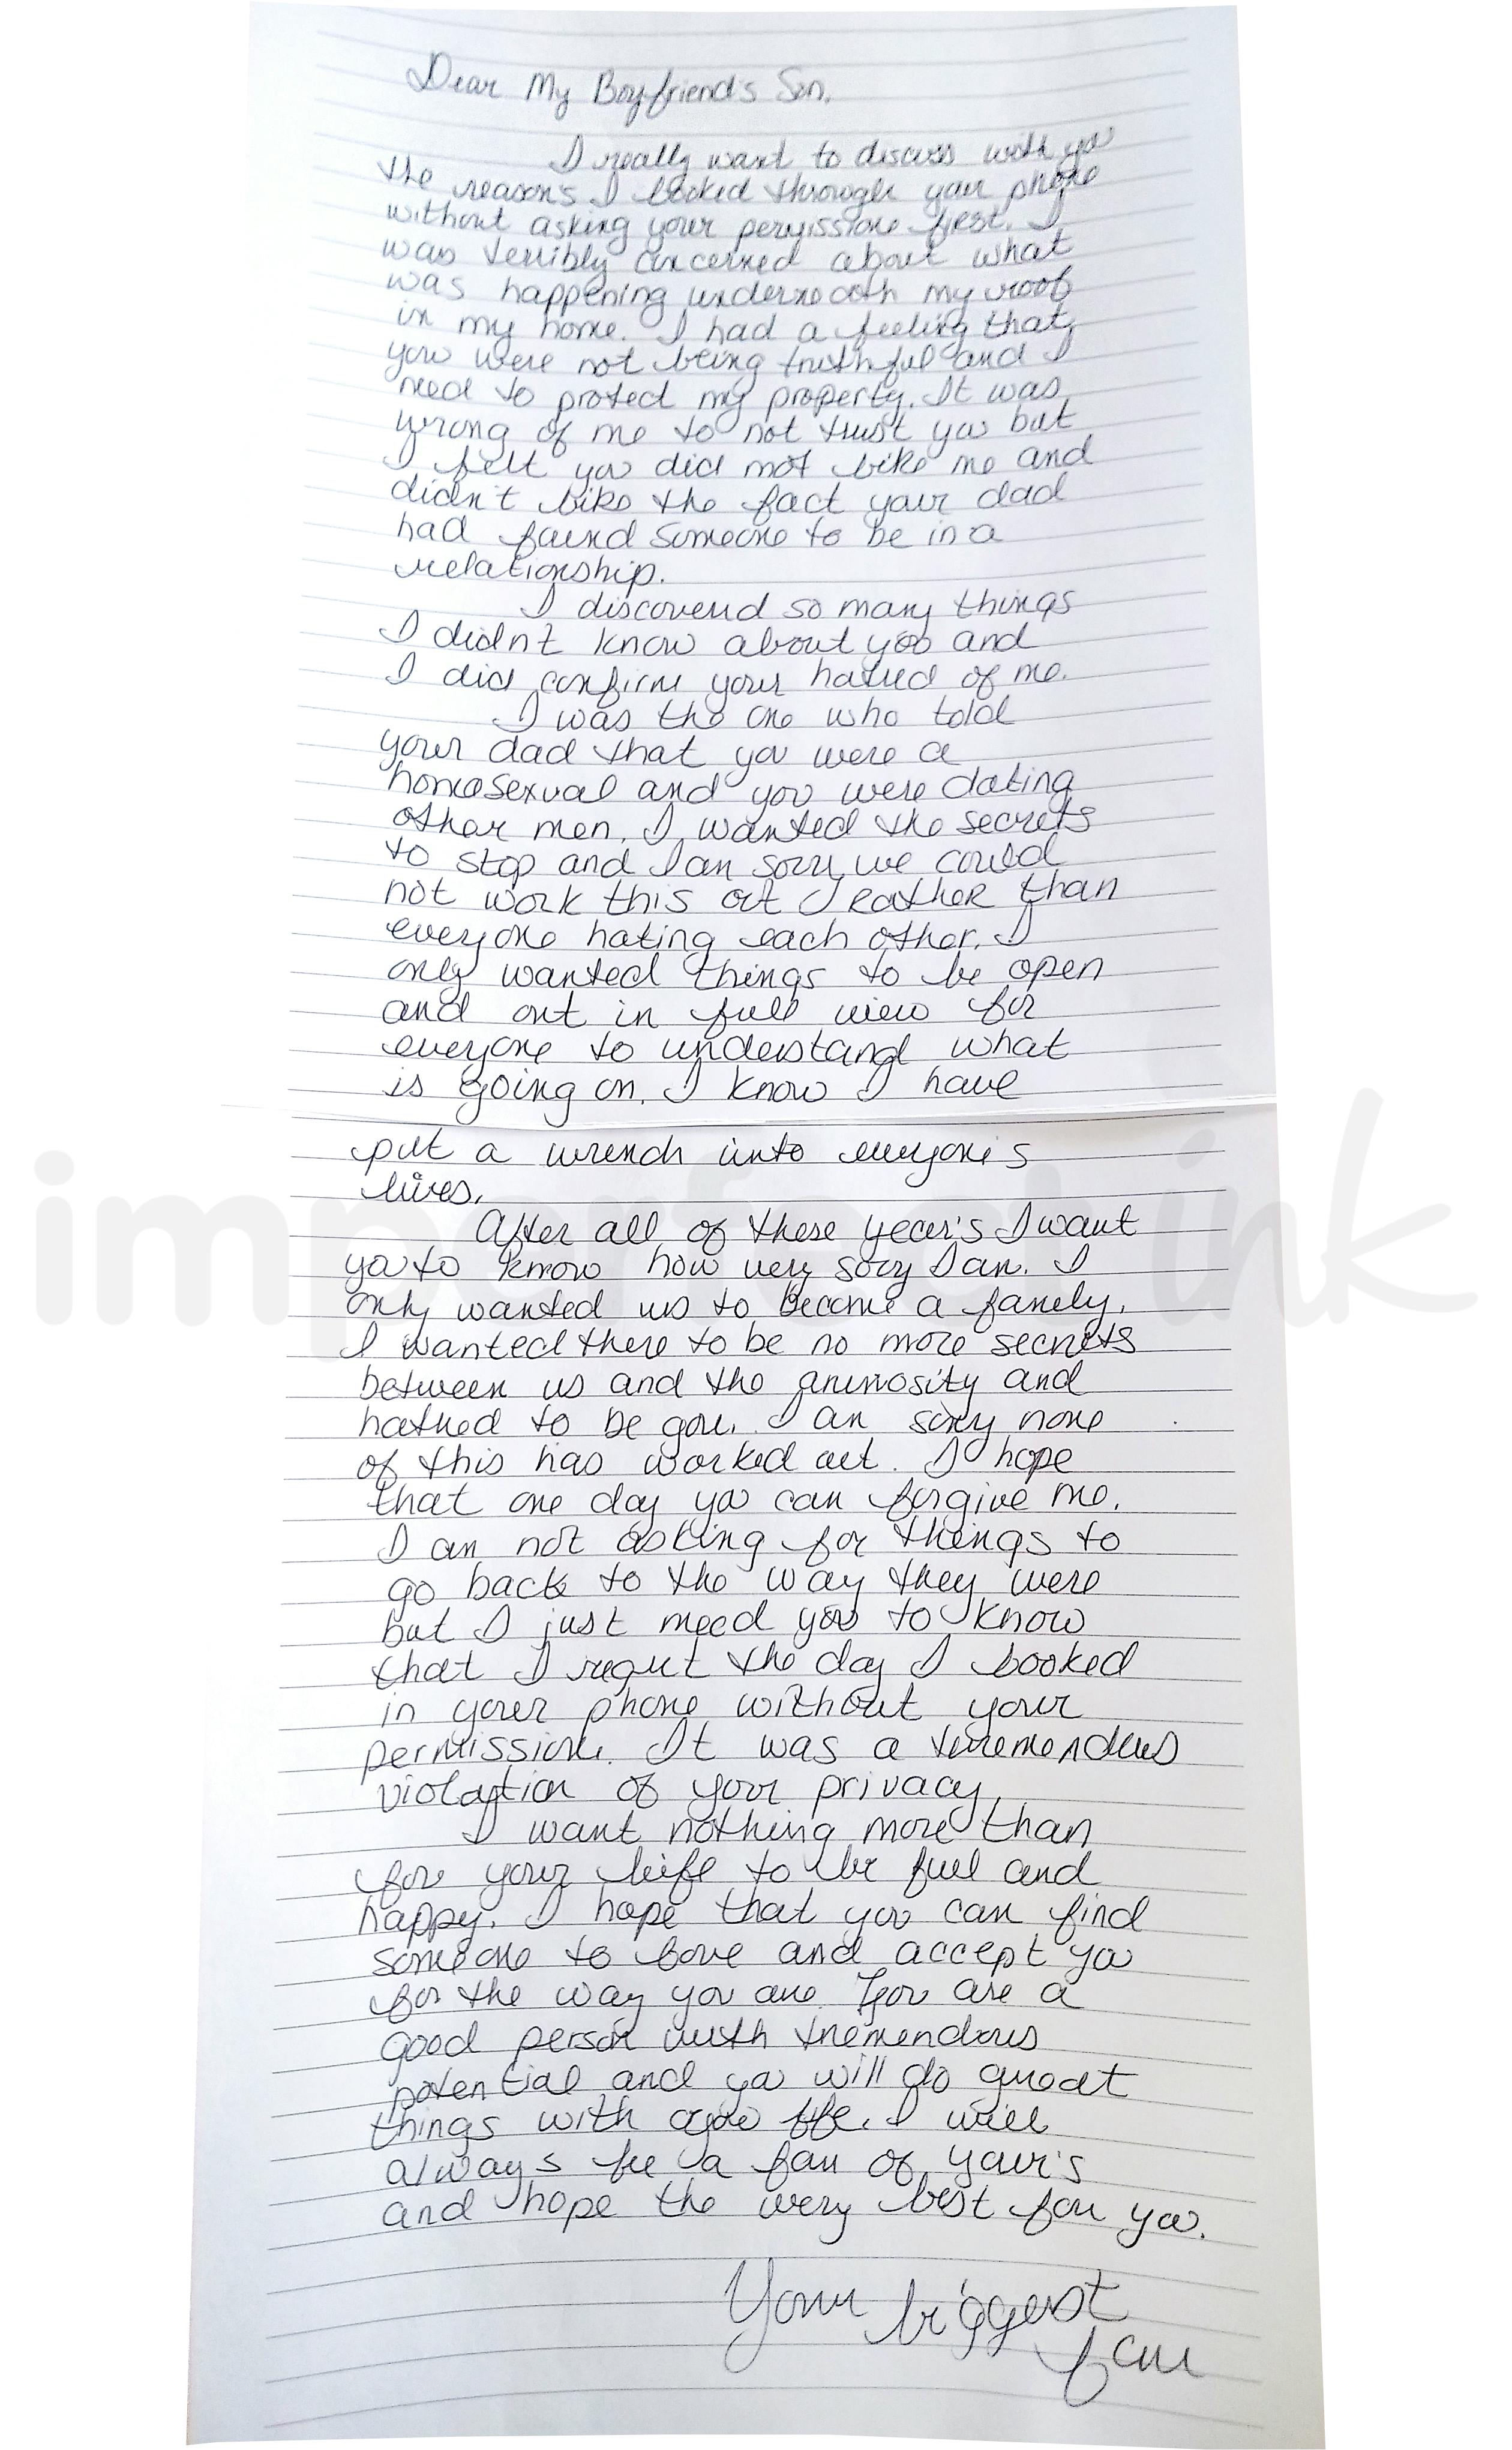 Dear My Boyfriend's Son,
I really want to discuss with you
the reasons I looked through your phone
without asking your permission first. I
was terribly concerned about what
was happening underneath my roof
in my home. I had a feeling that
you were not being truthful and I
need to protect my property. It was
wrong of me to not trust you but
I felt you did not like me and
didn't like the fact your dad
had found someone to be in a
relationship.
I discovered so many things
I didn't know about you and
I did confirm your hatred of me.
I was the one who told
your dad that you were a
homosexual and you were dating
other men. I wanted the secrets
to stop and I am sorry we could
not work this out rather than
everyone hating each other. I
only wanted things to be open
and out in full view for
everyone to understand what
is going on. I know I have
put a wrench into everyone's
lives.
After all of these year's I want
you to know how very sorry I am. I
only wanted us to become a family.
I wanted there to be no more secrets
between us and the animosity and
hatred to be gone. I am sorry none
of this has worked out. I hope
that one day you can forgive me.
I am not asking for things to
go back to the way they were
but I just need you to know
that I regret the day I looked
in your phone without your
permission. It was a tremendous
violation of your privacy.
I want nothing more than
for your life to be full and
happy. I hope that you can find
someone to love and accept you
for the way you are. You are a
good person with tremendous
potential and you will do great
things with life. I will
always be a fan of your's
and hope the very best for you.
Your biggest
fan
imperfect ink